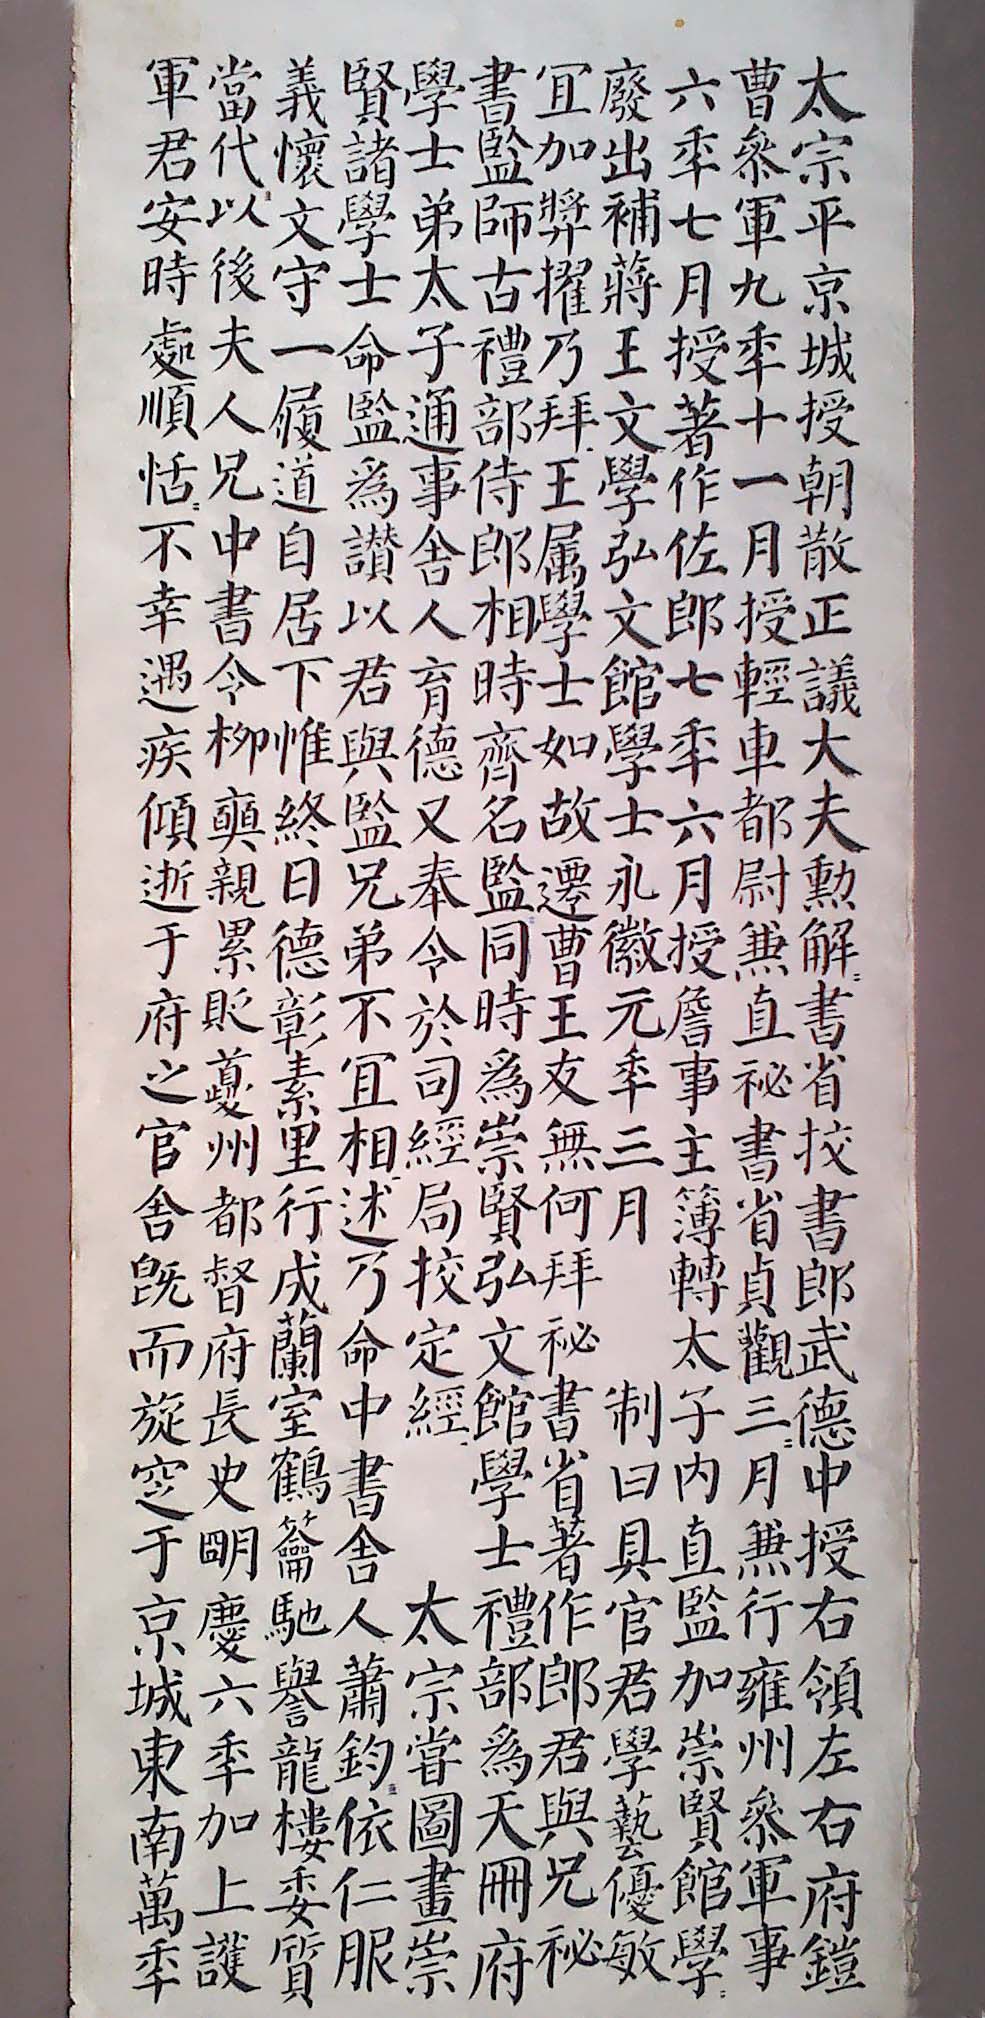 太宗平京城授朝散正議大夫勳解書省挍書郎武德中授右領左右府鎧
曹叅軍九秊十一月授輕車都尉兼直祕書省貞觀三月兼行雍州叅軍事
六秊七月授著作佐郎七秊六月授詹事主簿轉太子内直監加崇賢館學
廢出補蔣王文學弘文館學士永徽元秊三月　制曰具官君學藝優敏
冝加奬擢乃拜王属學士如故遷曹王友無何拜祕書省著作郎君與兄祕
書監師古禮部侍郎相時齊名監同時爲崇賢弘文館學士禮部爲天冊府
學士弟太子通事舍人育德又奉令於司經局挍定經　太宗甞圖畫崇
賢諸學士命監爲讃以君與監兄弟不冝相述乃命中書舍人蕭鈞依仁服
義懷文守一履道自居下惟終日德彰素里行成蘭室鶴籥馳譽龍樓委質
當代以後夫人兄中書令柳奭親累貶夔州都督府長史朙慶六秊加上護
軍君安時處順恬不幸遇疾傾逝于府之官舍旣而旋窆于京城東南萬秊